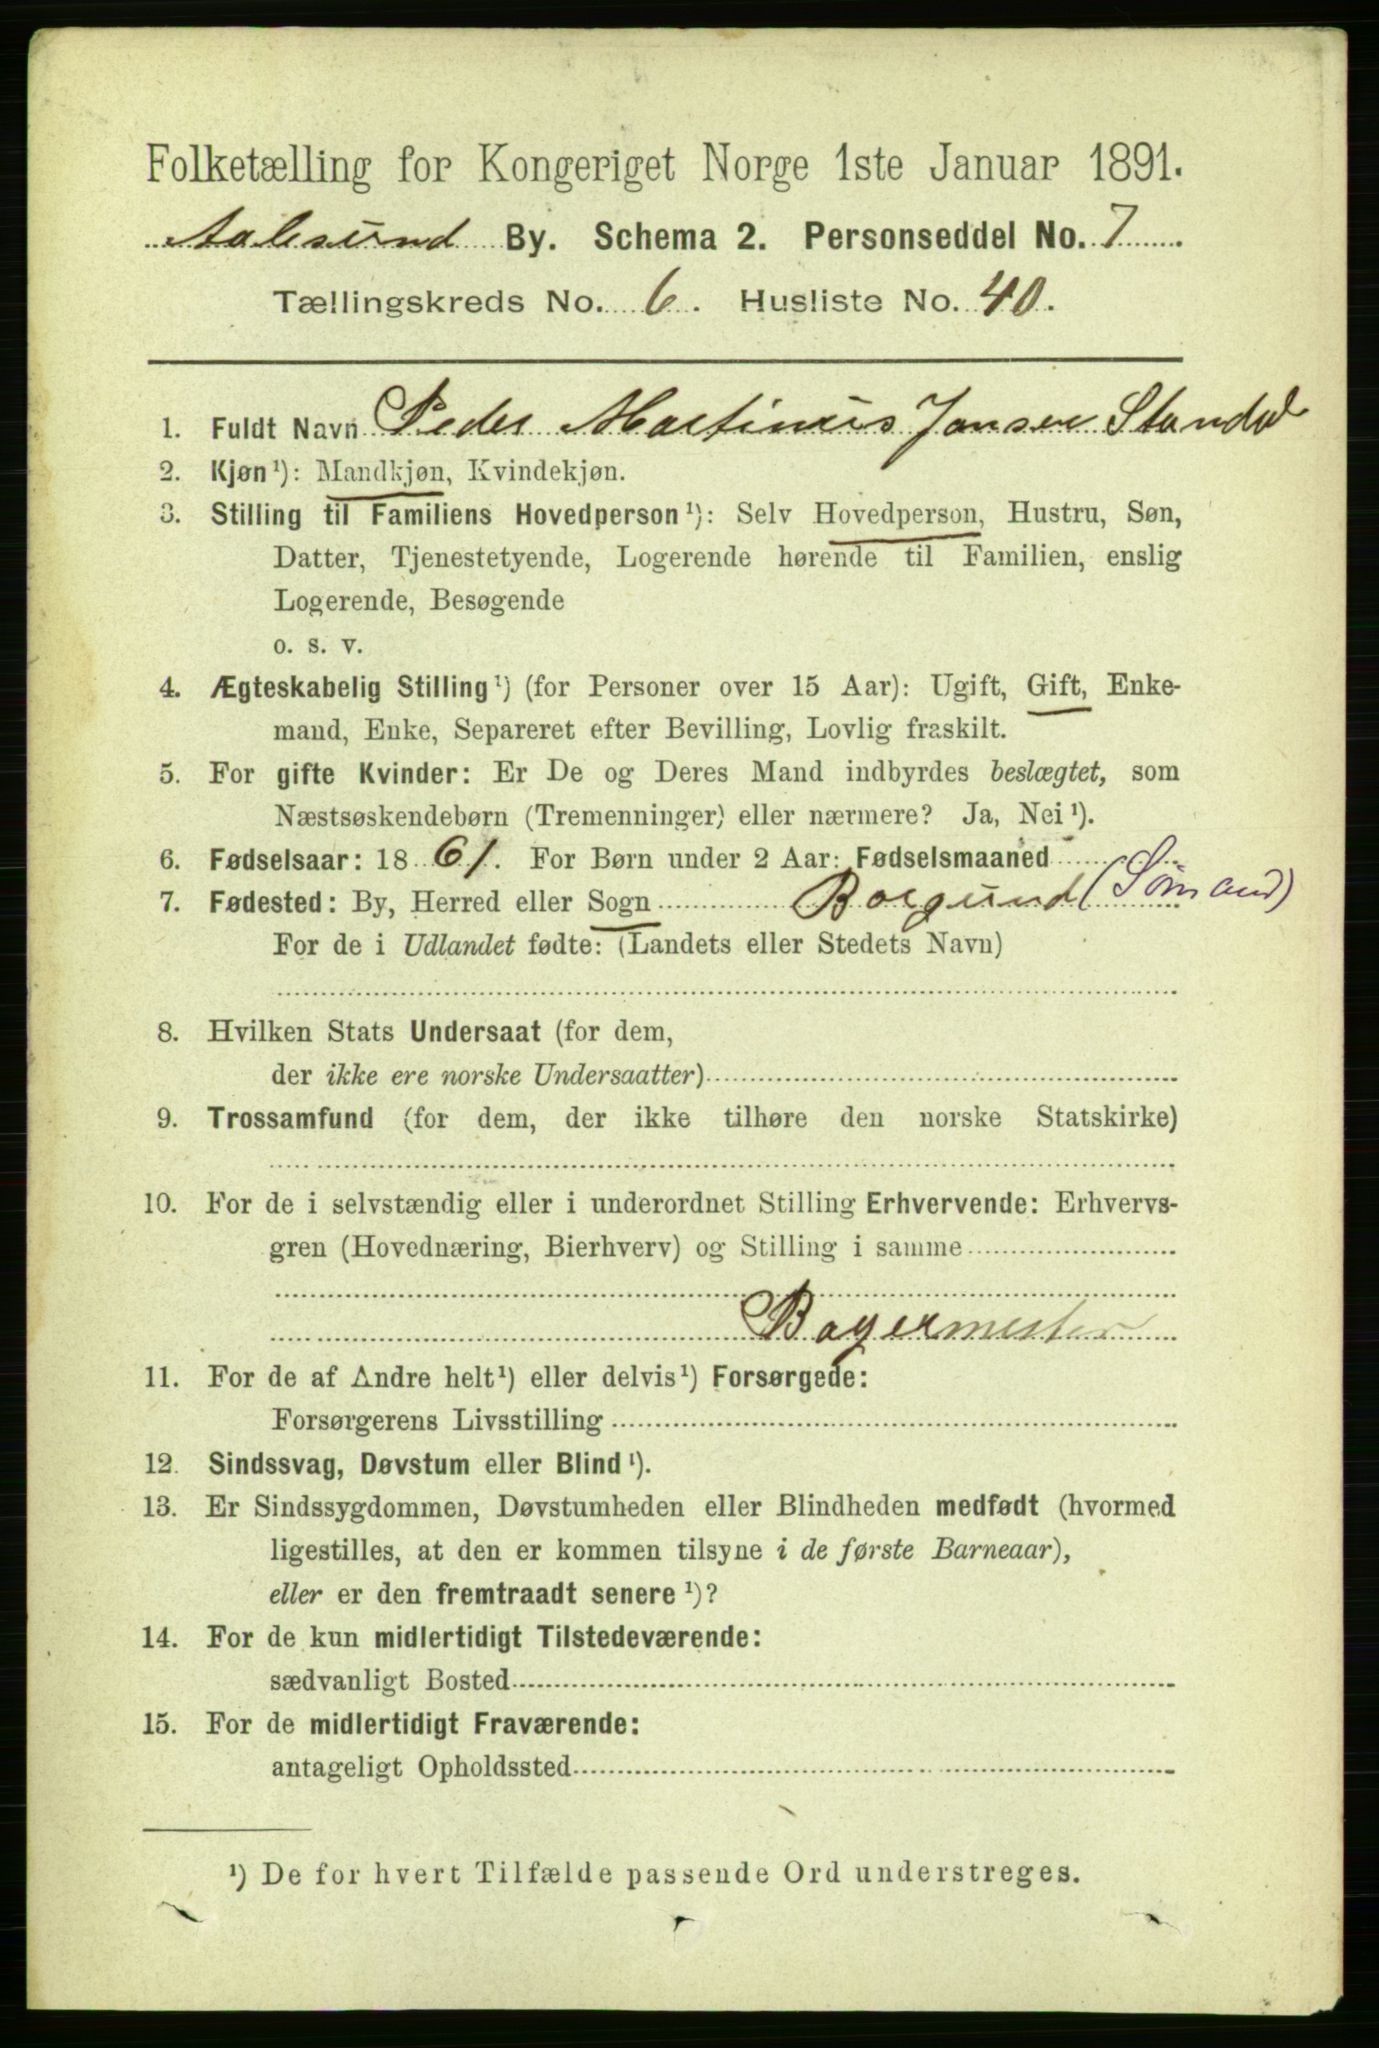 Folketælling for Kongeriget Norge 1ste Januar 1891.
Aalesund By. Schema 2. Personseddel No. 7
Tællingskreds No. 6. Husliste No. 40.
1. Fuldt Navn Peder Martinius Jansen Standal
2. Kjøn¹): Mandkjøn, Kvindekjøn.
3. Stilling til Familiens Hovedperson¹): Selv Hovedperson, Hustru, Søn,
Datter, Tjenestetyende, Logerende hørende til Familien, enslig
Logerende, Besøgende
o. s. v.
4. Ægteskabelig Stilling¹) (for Personer over 15 Aar): Ugift, Gift, Enke-
mand, Enke, Separeret efter Bevilling, Lovlig fraskilt.
5. For gifte Kvinder: Er De og Deres Mand indbyrdes beslægtet, som
Næstsøskendebørn (Tremenninger) eller nærmere? Ja, Nei¹).
6. Fødselsaar: 1861. For Børn under 2 Aar: Fødselsmaaned
7. Fødested: By, Herred eller Sogn Borgund (Sömand)
For de i Udlandet fødte: (Landets eller Stedets Navn)
8. Hvilken Stats Undersaat (for dem,
der ikke ere norske Undersaatter)
9. Trossamfund (for dem, der ikke tilhøre den norske Statskirke)
10. For de i selvstændig eller i underordnet Stilling Erhvervende: Erhvervs-
gren (Hovednæring, Bierhverv) og Stilling i samme
Bagermester
11. For de af Andre helt¹) eller delvis¹) Forsørgede:
Forsørgerens Livsstilling
12. Sindssvag, Døvstum eller Blind¹).
13. Er Sindssygdommen, Døvstumheden eller Blindheden medfødt (hvormed
ligestilles, at den er kommen tilsyne i de første Barneaar),
eller er den fremtraadt senere¹)?
14. For de kun midlertidigt Tilstedeværende:
sædvanligt Bosted
15. For de midlertidigt Fraværende:
antageligt Opholdssted
¹) De for hvert Tilfælde passende Ord understreges.